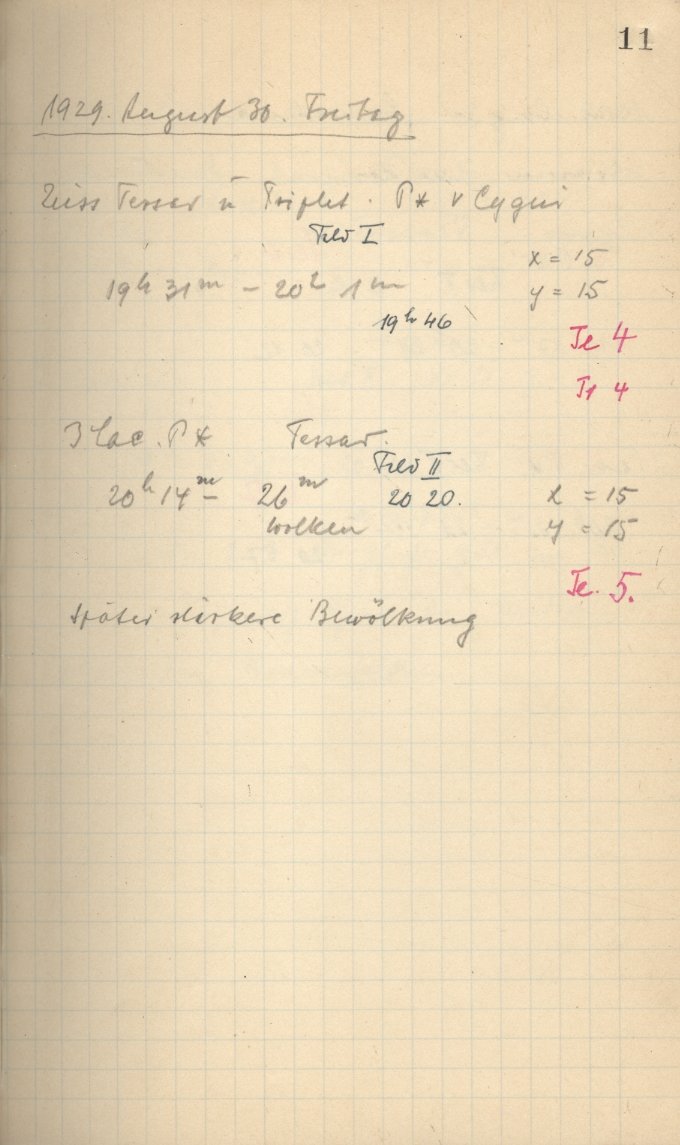 11
1929. August 30. Freitag
Zeiss Tessar u Triplet. P* ν Cygni
Feld I
x = 15
19h 31m – 20h 1m
y = 15
19h 46
Te 4
Tr 4
3 Lac. P* Tessar.
Feld II
20h 14m – 26m 20 20. x = 15
Wolken y = 15
Te. 5.
später stärkere Bewölkung